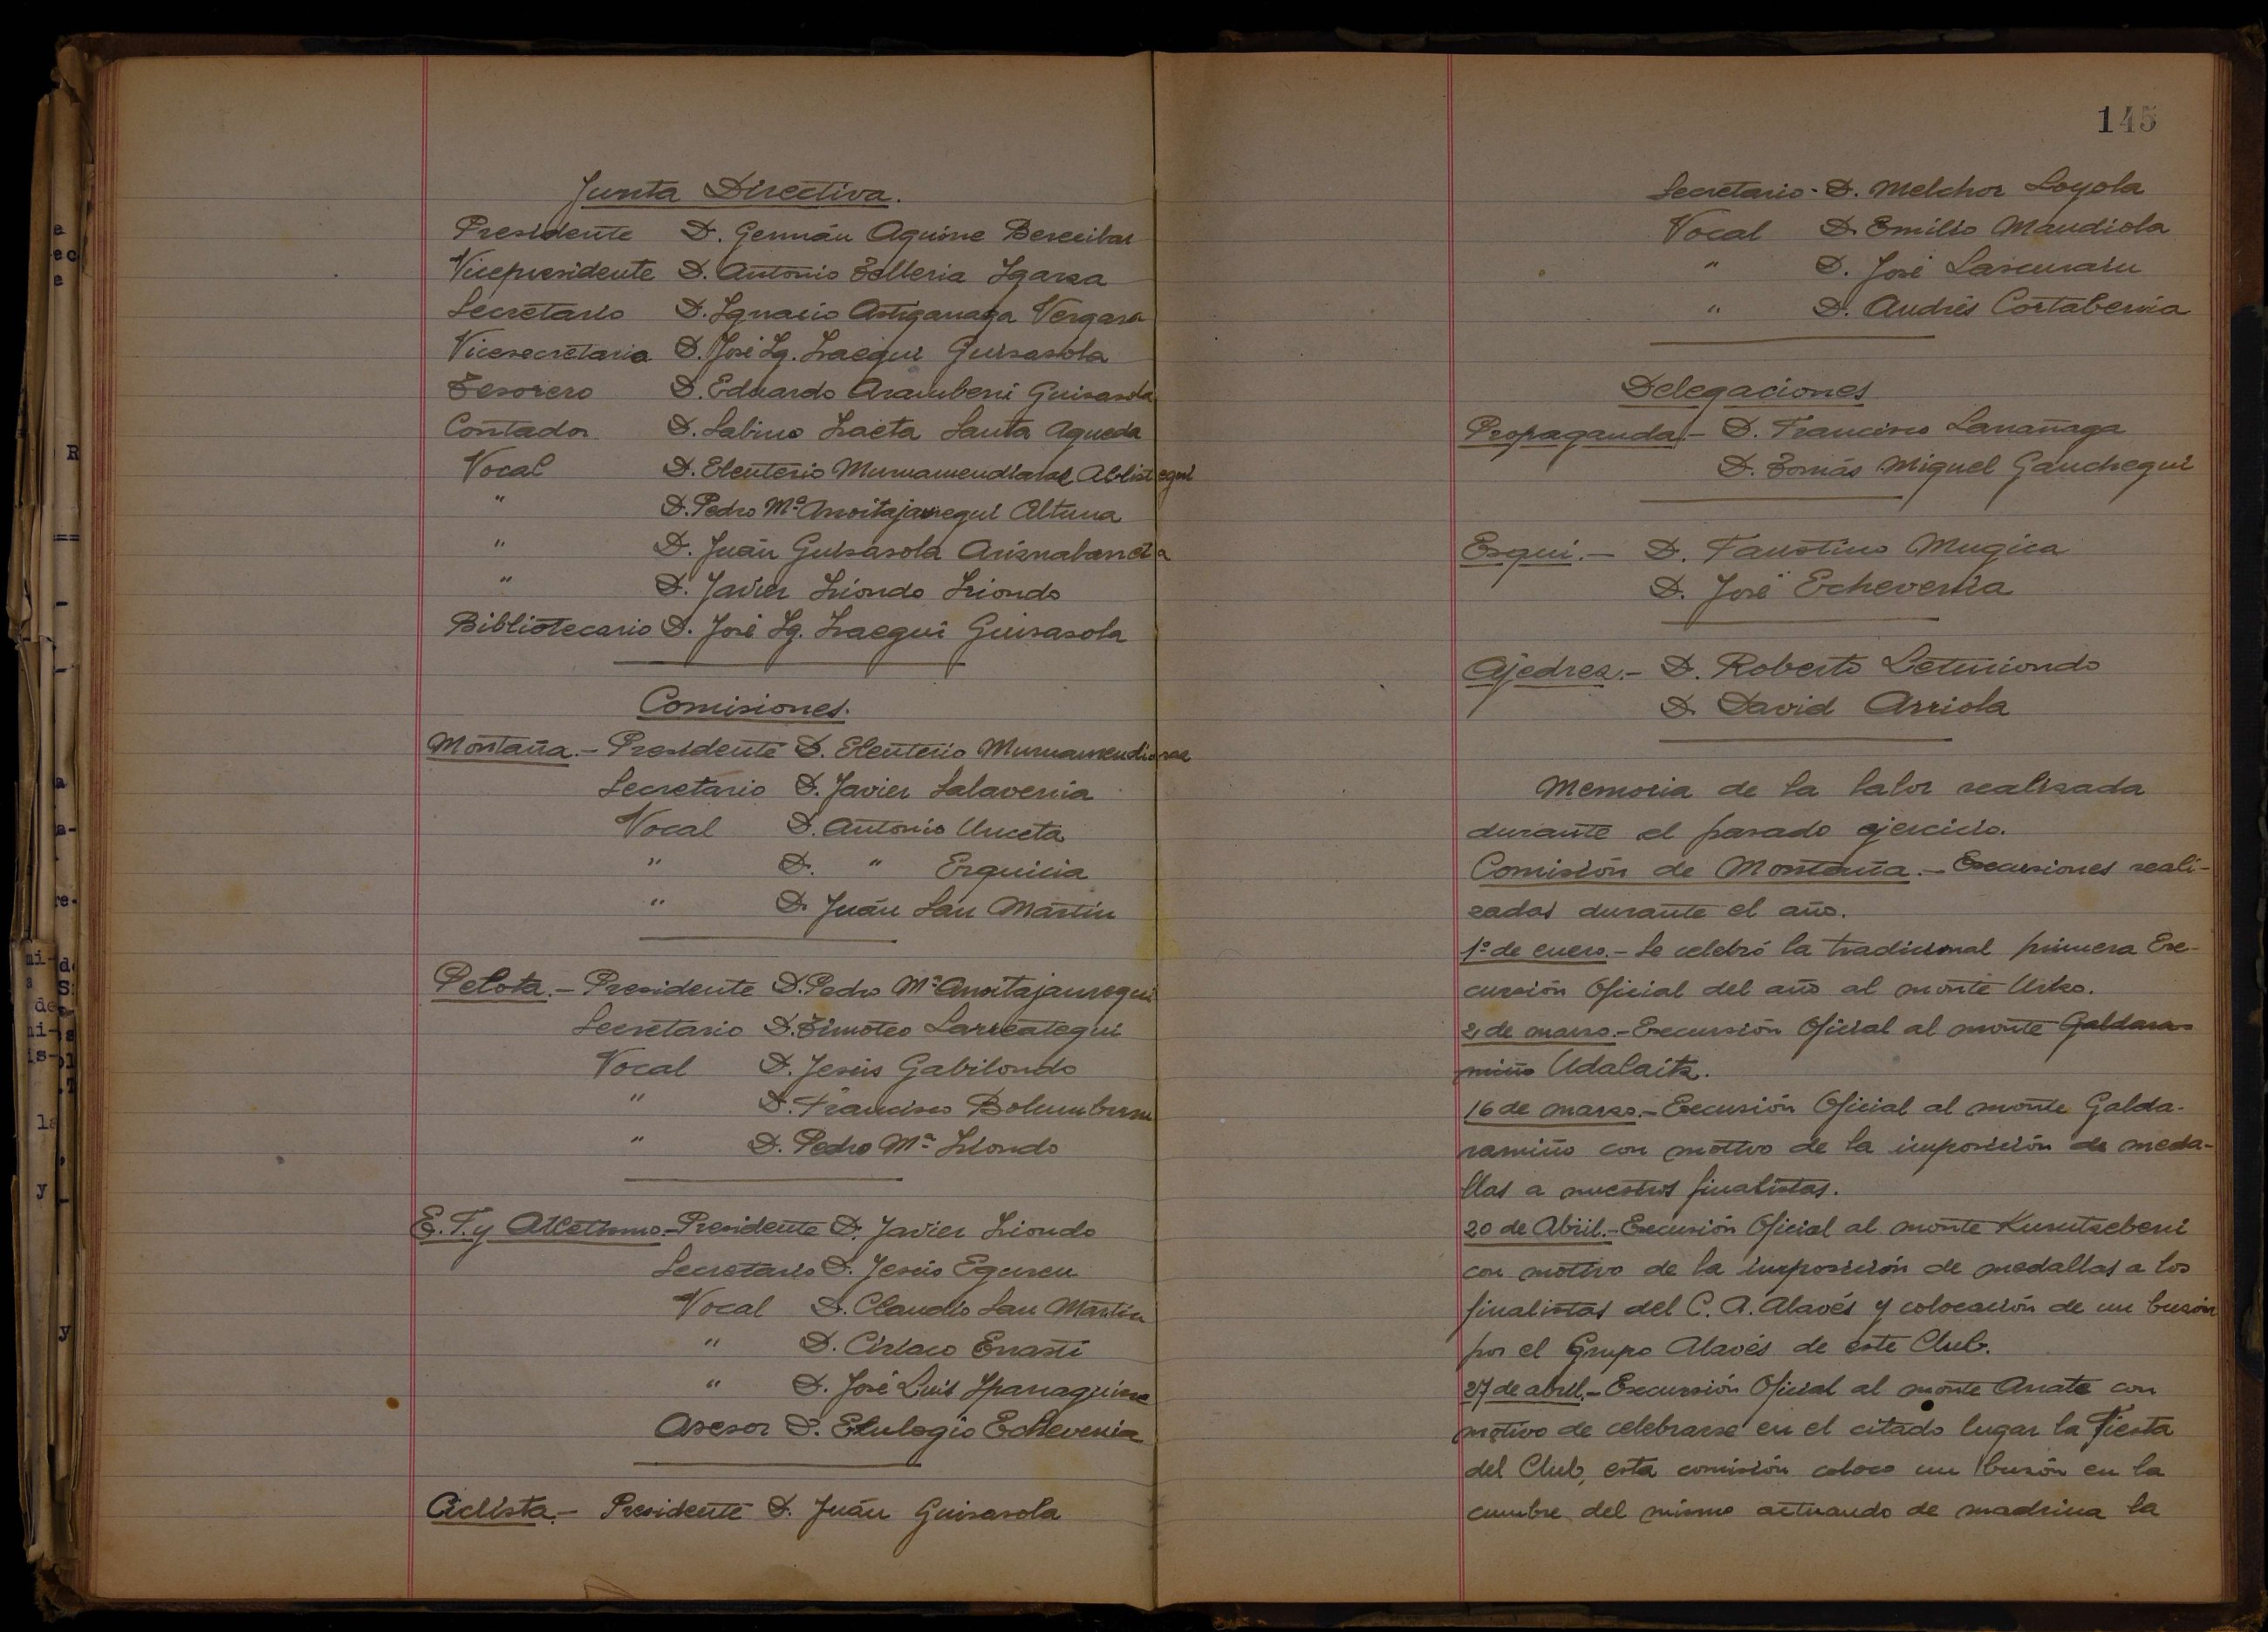 Junta Directiva.
Presidente D. Germán Aguirre Berecibar
Vicepresidente D. Antonio Telleria Igarza
Secretario D. Ignacio Astiganaga Vergara
Vicesecretario D. José Ig. Iraegui Guisasola
Tesorero D. Eduardo Aramberri Guisasola
Contador D. Sabino Isaeta Santa Agueda
Vocal D. Eleuterio Muruamendiaraz Albistegui
" D. Pedro Mª Arroitajauregui Altuna
" D. Juán Guisasola Arisnabarreta
" D. Javier Iriondo Iriondo
Bibliotecario D. José Ig. Iraegui Guisasola
Comisiones.
Montaña.- Presidente D. Eleuterio Muruamendiaraz
Secretario D. Javier Salaverria
Vocal D. Antonio Unceta
" D. " Erquicia
" D. Juán San Martín
Pelota.- Presidente D. Pedro Mª Arroitajauregui
Secretario D. Timoteo Larreategui
Vocal D. Jesús Gabilondo
" D. Francisco Bolumburu
" D. Pedro Mª Iriondo
E. F. y Atletismo.- Presidente D. Javier Iriondo
Secretario D. Jesús Eguren
Vocal D. Claudio San Martín
" D. Ciriaco Errasti
" D. José Luis Iparraguirre
Asesor D. Eulogio Echeverria
Ciclista.- Presidente D. Juán Guisasola
145
Secretario - D. Melchor Loyola
Vocal D. Emilio Mandiola
" D. José Lascurain
" D. Andrés Cortaberria
Delegaciones
Propaganda.- D. Francisco Larrañaga
D. Tomás Miguel Ganchegui
Esqui.- D. Faustino Mugica
D. José Echeverria
Ajedrez.- D. Roberto Leturiondo
D. David Arriola
Memoria de la labor realizada
durante el pasado ejercicio.
Comisión de Montaña.- Excursiones reali-
zadas durante el año.
1º de enero.- Se celebró la tradicional primera Ex-
cursión Oficial del año al monte Urko.
2 de marzo.- Excursión Oficial al monte Galdara-
miño Udalaitz.
16 de marzo.- Excursión Oficial al monte Galda-
ramiño con motivo de la imposición de meda-
llas a nuestros finalistas.
20 de Abril.- Excursión Oficial al monte Kurutzeberri
con motivo de la imposición de medallas a los
finalistas del C. A. Alavés y colocación de un buzón
por el Grupo Alavés de este Club.
27 de abril.- Excursión Oficial al monte Arrate con
motivo de celebrarse en el citado lugar la Fiesta
del Club, esta comisión coloco un buzón en la
cumbre del mismo actuando de madrina la